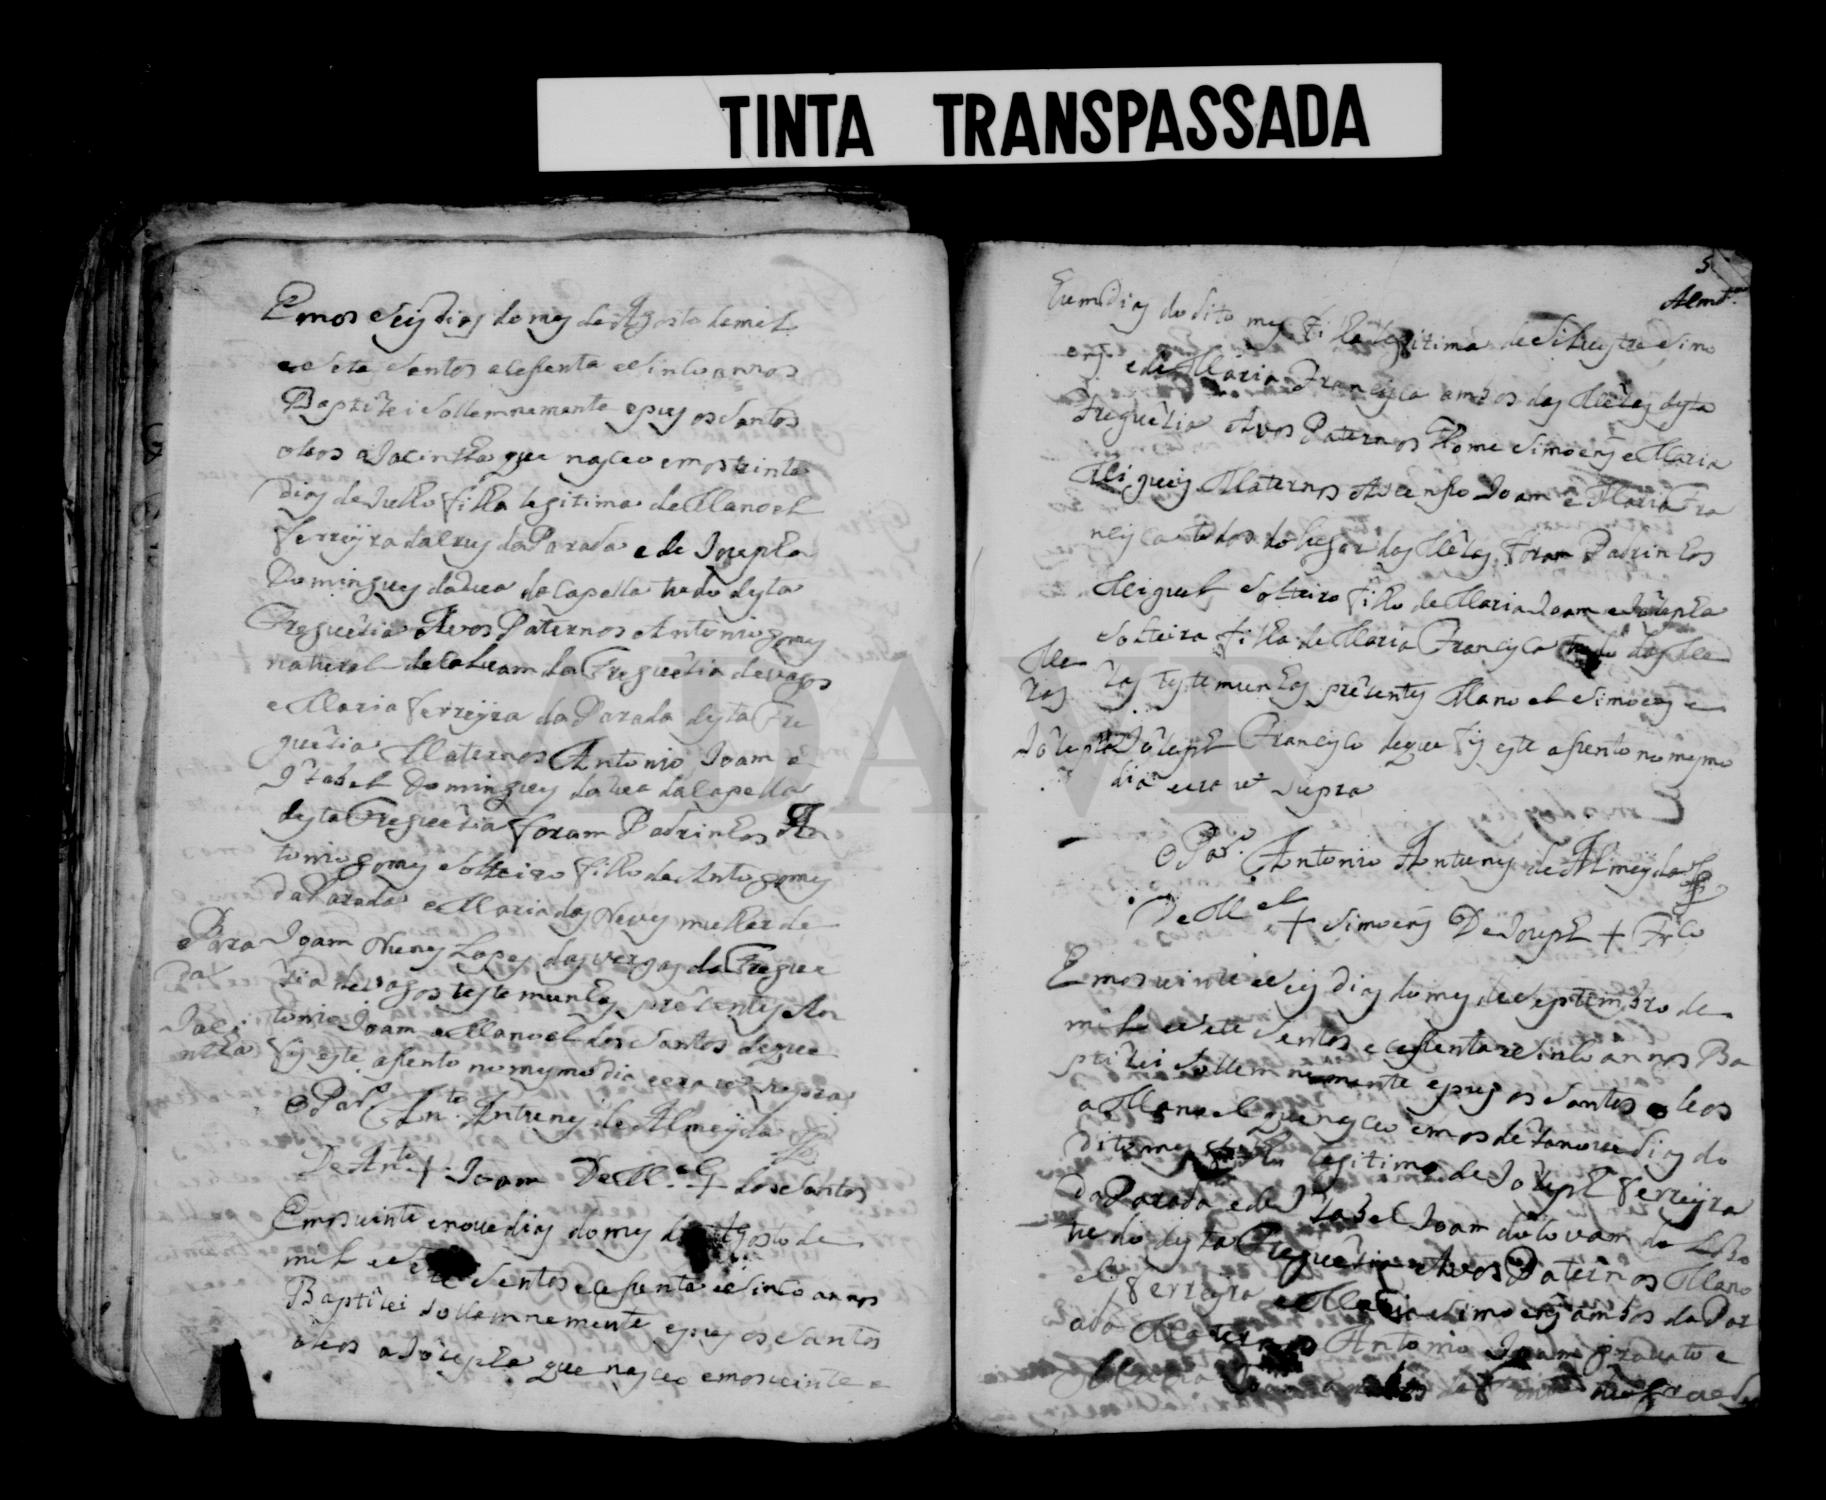 TINTA TRANSPASSADA
Emos Seis dias do mes de Agosto de mil
e Sete Sentos e Sesenta e Sinco annos
Baptizei Sollemnemente e pus os Santos
oleos a Jacintha que nasceo emos trinta
dias de Julho filha legitima de Manoel
Ferreyra da Crus da Parada e de Josepha
Domingues da da Capella tudo desta
Freguezia Avos Paternos Antonio gomes
natural de da Freguezia de vagos
e Maria Ferreyra da Parada desta Fre
guezia Maternos Antonio Joam e
Izabel Domingues da Capella
desta Freguezia foram Padrinhos An
tonio gomes Solteiro filho de Anto gomes
da Parada e Maria das Neves mulher de
Joam Nunes Lopes das vergas da Fregue
zia de vagos testemunhas prezentes An
tonio Joam e Manoel dos Santos de que
fis este asento no mesmo dia e era ut supra
Para
da
Jaci
ntha
O Par.º Ant.º Antunes de Almeyda
De Ant.º + Joam De M.el + dos Santos
Emos vinte e nove dias do mes de Agosto de
mil e Sete Sentos e Sesenta e Sinco annos
Baptizei Sollemnemente e pus os Santos
oleos a Jozepha que nasceo emos vinte e
5
Almd.ª
hum dias do dito mes filha legitima de Silvestre Simo
ens e de Maria Francisca ambos das Mezas desta
Freguezia Avos Paternos Thome Simoens e Maria
Migueis Maternos Joam e Maria Fra
ncisca todos do lugar das Mezas foram Padrinhos
Miguel Solteiro filho de Maria Joam e Jozepha
Solteira filha de Maria Francisca tudo das Me
zas testemunhas prezentes Manoel Simoens e
Jozeph Francisco de que fis este asento no mesmo
dia e era ut supra
Me
zas
Jozepha
O Par.º Antonio Antunes de Almeyda
De M.el + Simoens De Joseph + Fr.co
Emos vinte e Seis dias do mes de Septembro de
mil e Sete Sentos e Sesenta e Sinco annos Ba
ptizei Sollemnemente e pus os Santos oleos
a Manoel que nasceo emos dezanove dias do
dito mes filho legitimo de Jozeph Ferreyra
da Parada e de Izabel Joam do
tudo desta Freguezia Avos Paternos Mano
el Ferreyra e Maria Simoens ambos da Par
ada Maternos Antonio Joam e
Maria Joam ambos da